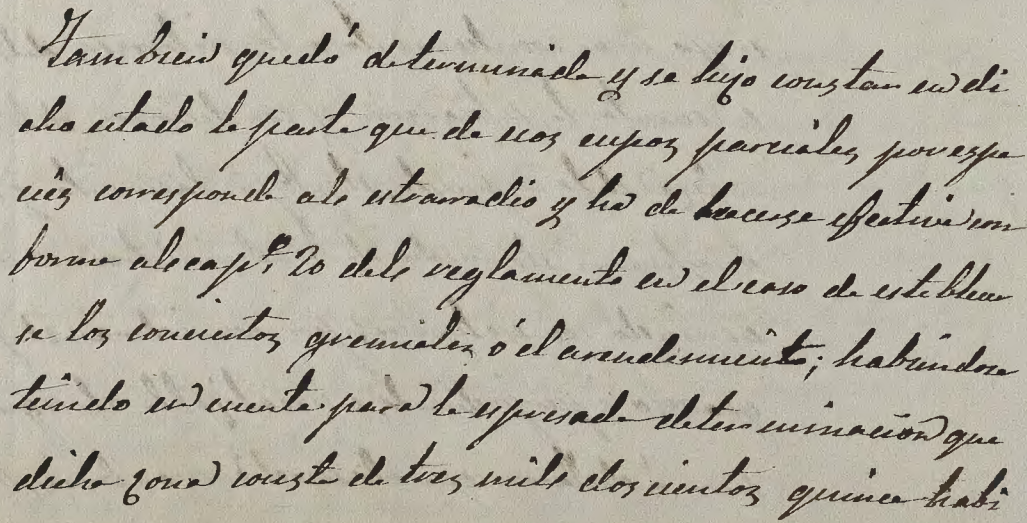 Tambien quedó determinada y se hizo constar en di
cho estado la parte que de esos cupos parciales por espe
cies corresponde al estrarradio y ha de hacerse efectiva con
forme al capº 20 del reglamento en el caso de establecer
se los conciertos gremiales ó el arrendamiento; habiendose
tenido en cuenta para la espresada determinación que
dicha zona consta de tres mil doscientos quince habi